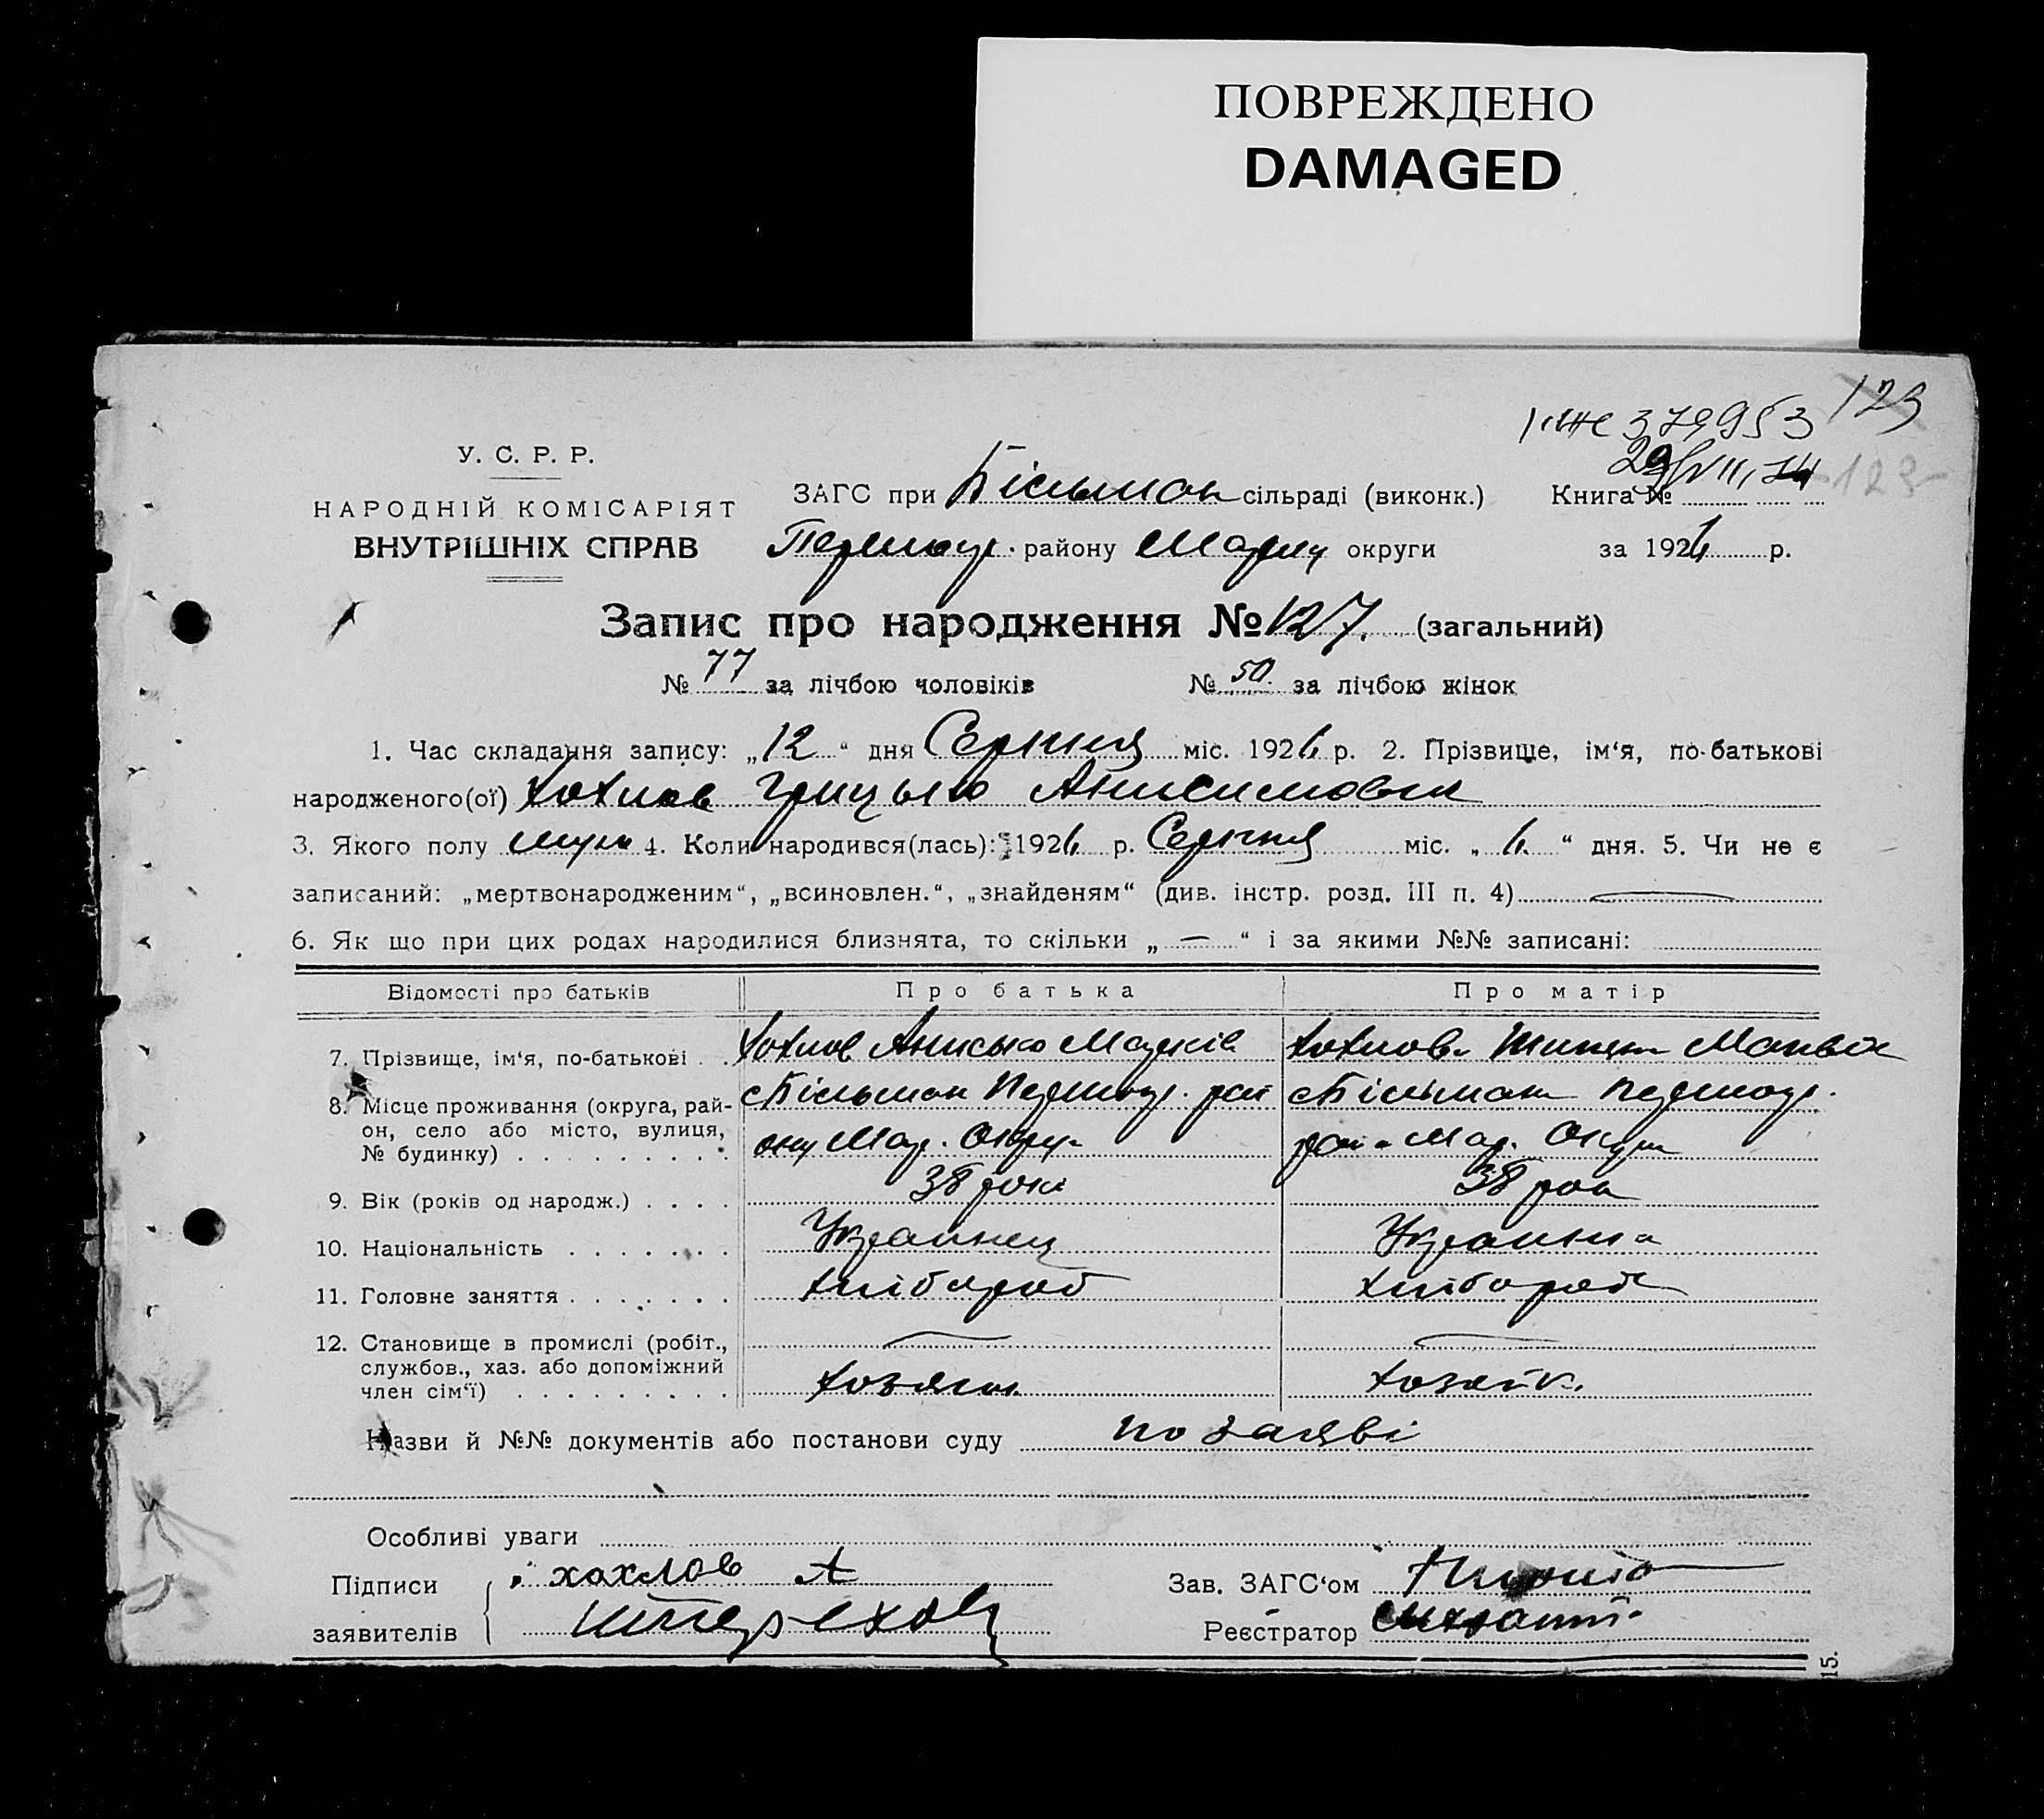 ПОВРЕЖДЕНО
DAMAGED
123
379953
29/VII, 74
123
У. С. Р. Р.
НАРОДНІЙ КОМІСАРІЯТ
ВНУТРІШНІХ СПРАВ
ЗАГС при Більман сільраді (виконк.) Книга №
району Марiу округи за 1926 р.
Запис про народження № 127. (загальний)
№ 77 за лічбою чоловіків № 50 за лічбою жінок
1. Час складання запису: „12“ дня Серпня міс. 1926 р. 2. Прізвище, ім‘я, по-батькові
народженого(ої) Хохлов Грицько Анисимович
3. Якого полу муж 4. Коли народився(лась): 1926 р. Серпня міс. „6“ дня. 5. Чи не є
записаний: „мертвонародженим“, „всиновлен.“, „знайденям“ (див. інстр. розд. III п. 4) —
6. Як що при цих родах народилися близнята, то скільки „—“ і за якими №№ записані:
Відомості про батьків Про батька Про матір
7. Прізвище, ім‘я, по-батькові . . Хохлов Анисько Марків Хохлова
8. Місце проживання (округа, рай-
он, село або місто, вулиця,
№ будинку) . . . . . . . . .
с Більман рай
ону Мар. Окру.
с Більман
рай. Мар. Округи
9. Вік (років од народж.) . . . . 38 рокі 38 рок
10. Національність . . . . . . . Украинец Украинка
11. Головне заняття . . . . . . . хлібороб хлібороб
12. Становище в промислі (робіт.,
службов., хаз. або допоміжний
член сім‘ї) . . . . . . . . .
— —
хозяин хозяйк.
Назви й №№ документів або постанови суду по заяві
Особливі уваги
Підписи
заявителів
хохлов А
Зав. ЗАГС‘ом
Реєстратор
15.